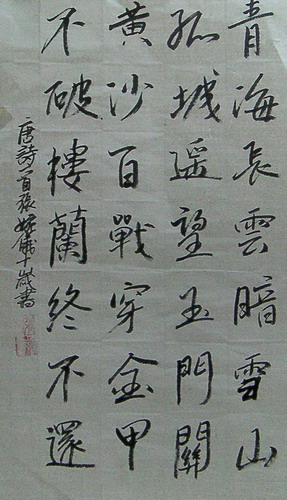 青海長雲暗雪山
孤城遥望玉門關
黃沙百戰穿金甲
不破樓蘭終不還
唐詩一首張 十歲書